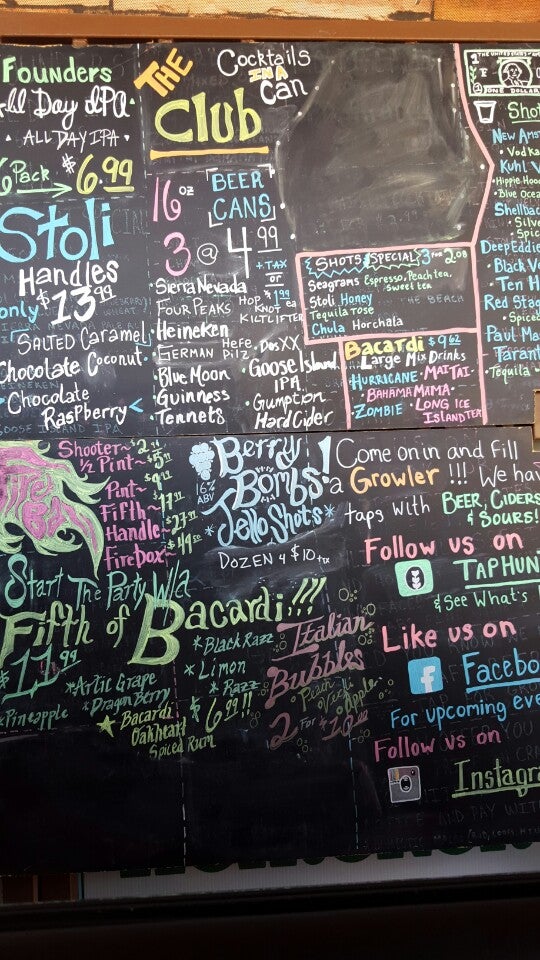 Founders
All Day IPA
• ALL DAY IPA •
6 Pack → $6.99
Stoli
Handles
only $13.99
SALTED Caramel
Chocolate Coconut
• Chocolate
Raspberry
THE
Club
Cocktails
IN A
Can
16 oz
BEER
CANS
3 @ 4.99
+ TAX
or
1.99
ea
• Sierra Nevada
Hop
• Four Peaks
KNOT
KILTLIFTER
• Heineken
• German
Hefe
Pilz
• DosXX
• Blue Moon
• Goose Island
IPA
• Guinness
• Gumption
Hard Cider
• Tennets
SHOTS SPECIAL 3 FOR 2.08
Seagrams Espresso, Peach tea,
Sweet tea
Stoli Honey
Tequila rose
Chula Horchala
Bacardi $9.62
Large Mix Drinks
HURRICANE • MAI TAI
• BAHAMA MAMA •
• ZOMBIE • LONG ICE
ISLAND TEA
ONE DOLLAR
Shot
New Ams
• Vodka
Kuhl V
• Hippie Hoo
• Blue Ocea
Shellba
• Silve
• Spice
Deep Eddie
Black V
Ten H
Red Stag
• Spice
Paul Ma
Taran
• Tequila
Shooter~
½ Pint~
Pint~
Fifth~
Handle~
Firebox~
Berry
Bombs!
16%
ABV
*Jello Shots*
DOZEN 4 $10 + tax
Start The Party W/a
Fifth of Bacardi!!!
$11.99
* Black Razz
* Limon
* Razz
* Artic Grape
* Dragon Berry
* Pineapple
Bacardi
Oakheart
Spiced Rum
$6.99!!
Italian
Bubbles
• Peach
• Apple
2 For $10.00
Come on in and Fill
a Growler !!! We hav
taps with BEER, CIDERS
& SOURS!
Follow us on
TAPHUN
& See What's
Like us on
f Facebo
For upcoming eve
Follow us on
Instagra